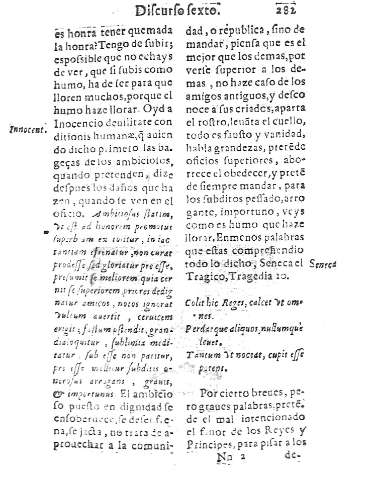 Discurso sexto. 282
es honra tener quemada
la honra? Tengo de subir;
es possible que no echays
de ver, que si subis como
humo, ha de ser para que
lloren muchos, porque el
humo haze llorar. Oyd a
Inocencio de utilitate con
Innocent.
ditionis humanæ, q̃ auien
do dicho primero las ba-
geças de los ambiciosos,
quando pretenden, dize
despues los daños que ha
zen, quando se ven en el
oficio. Ambitiosus statim,
vt est ad honorem promotus
superbiam ex tuitur, in iac
tantiam effrenatur, non curat
prodesse sed gloriatur præesse,
præsumit se meliorem quia cer
nit se superiorem, priores dedig
natur amicos, notos ignorat
vultum auertit, ceruicem
erigit, fastum ostendit, gran-
dia loquitur, sublimia medi-
tatur, sub esse non patitur,
præ esse molitur subditis o-
nerosus arrogans, grauis,
& importunus. El ambicio
so puesto en dignidad se
ensoberuece, se desenfre-
na, se jacta, no trata de a-
prouechar a la comuni-
dad, o republica, sino de
mandar, piensa que es el
mejor que los demas, por
verse superior a los de-
mas, no haze caso de los
amigos antiguos, y desco
noce a sus criados, aparta
el rostro, leuãta el cuello,
todo es fausto y vanidad,
habla grandezas, pretẽde
oficios superiores, abo-
rrece el obedecer, y pretẽ
de siempre mandar, para
los subditos pessado, arro
gante, importuno, veys
como es humo que haze
llorar. En menos palabras
que estas comprendio
todo lo dicho, Seneca el
Seneca
Tragico, Tragedia 10.
Colit hic Reges, calcet vt om-
nes.
Perdat que aliquos, nullumque
leuet.
Tantum vt noceat, cupit esse
potens.
Por cierto breues, pe-
ro graues palabras, pretẽ-
de el mal intencionado
el fauor de los Reyes y
Principes, para pisar a los
Nn 2 de-